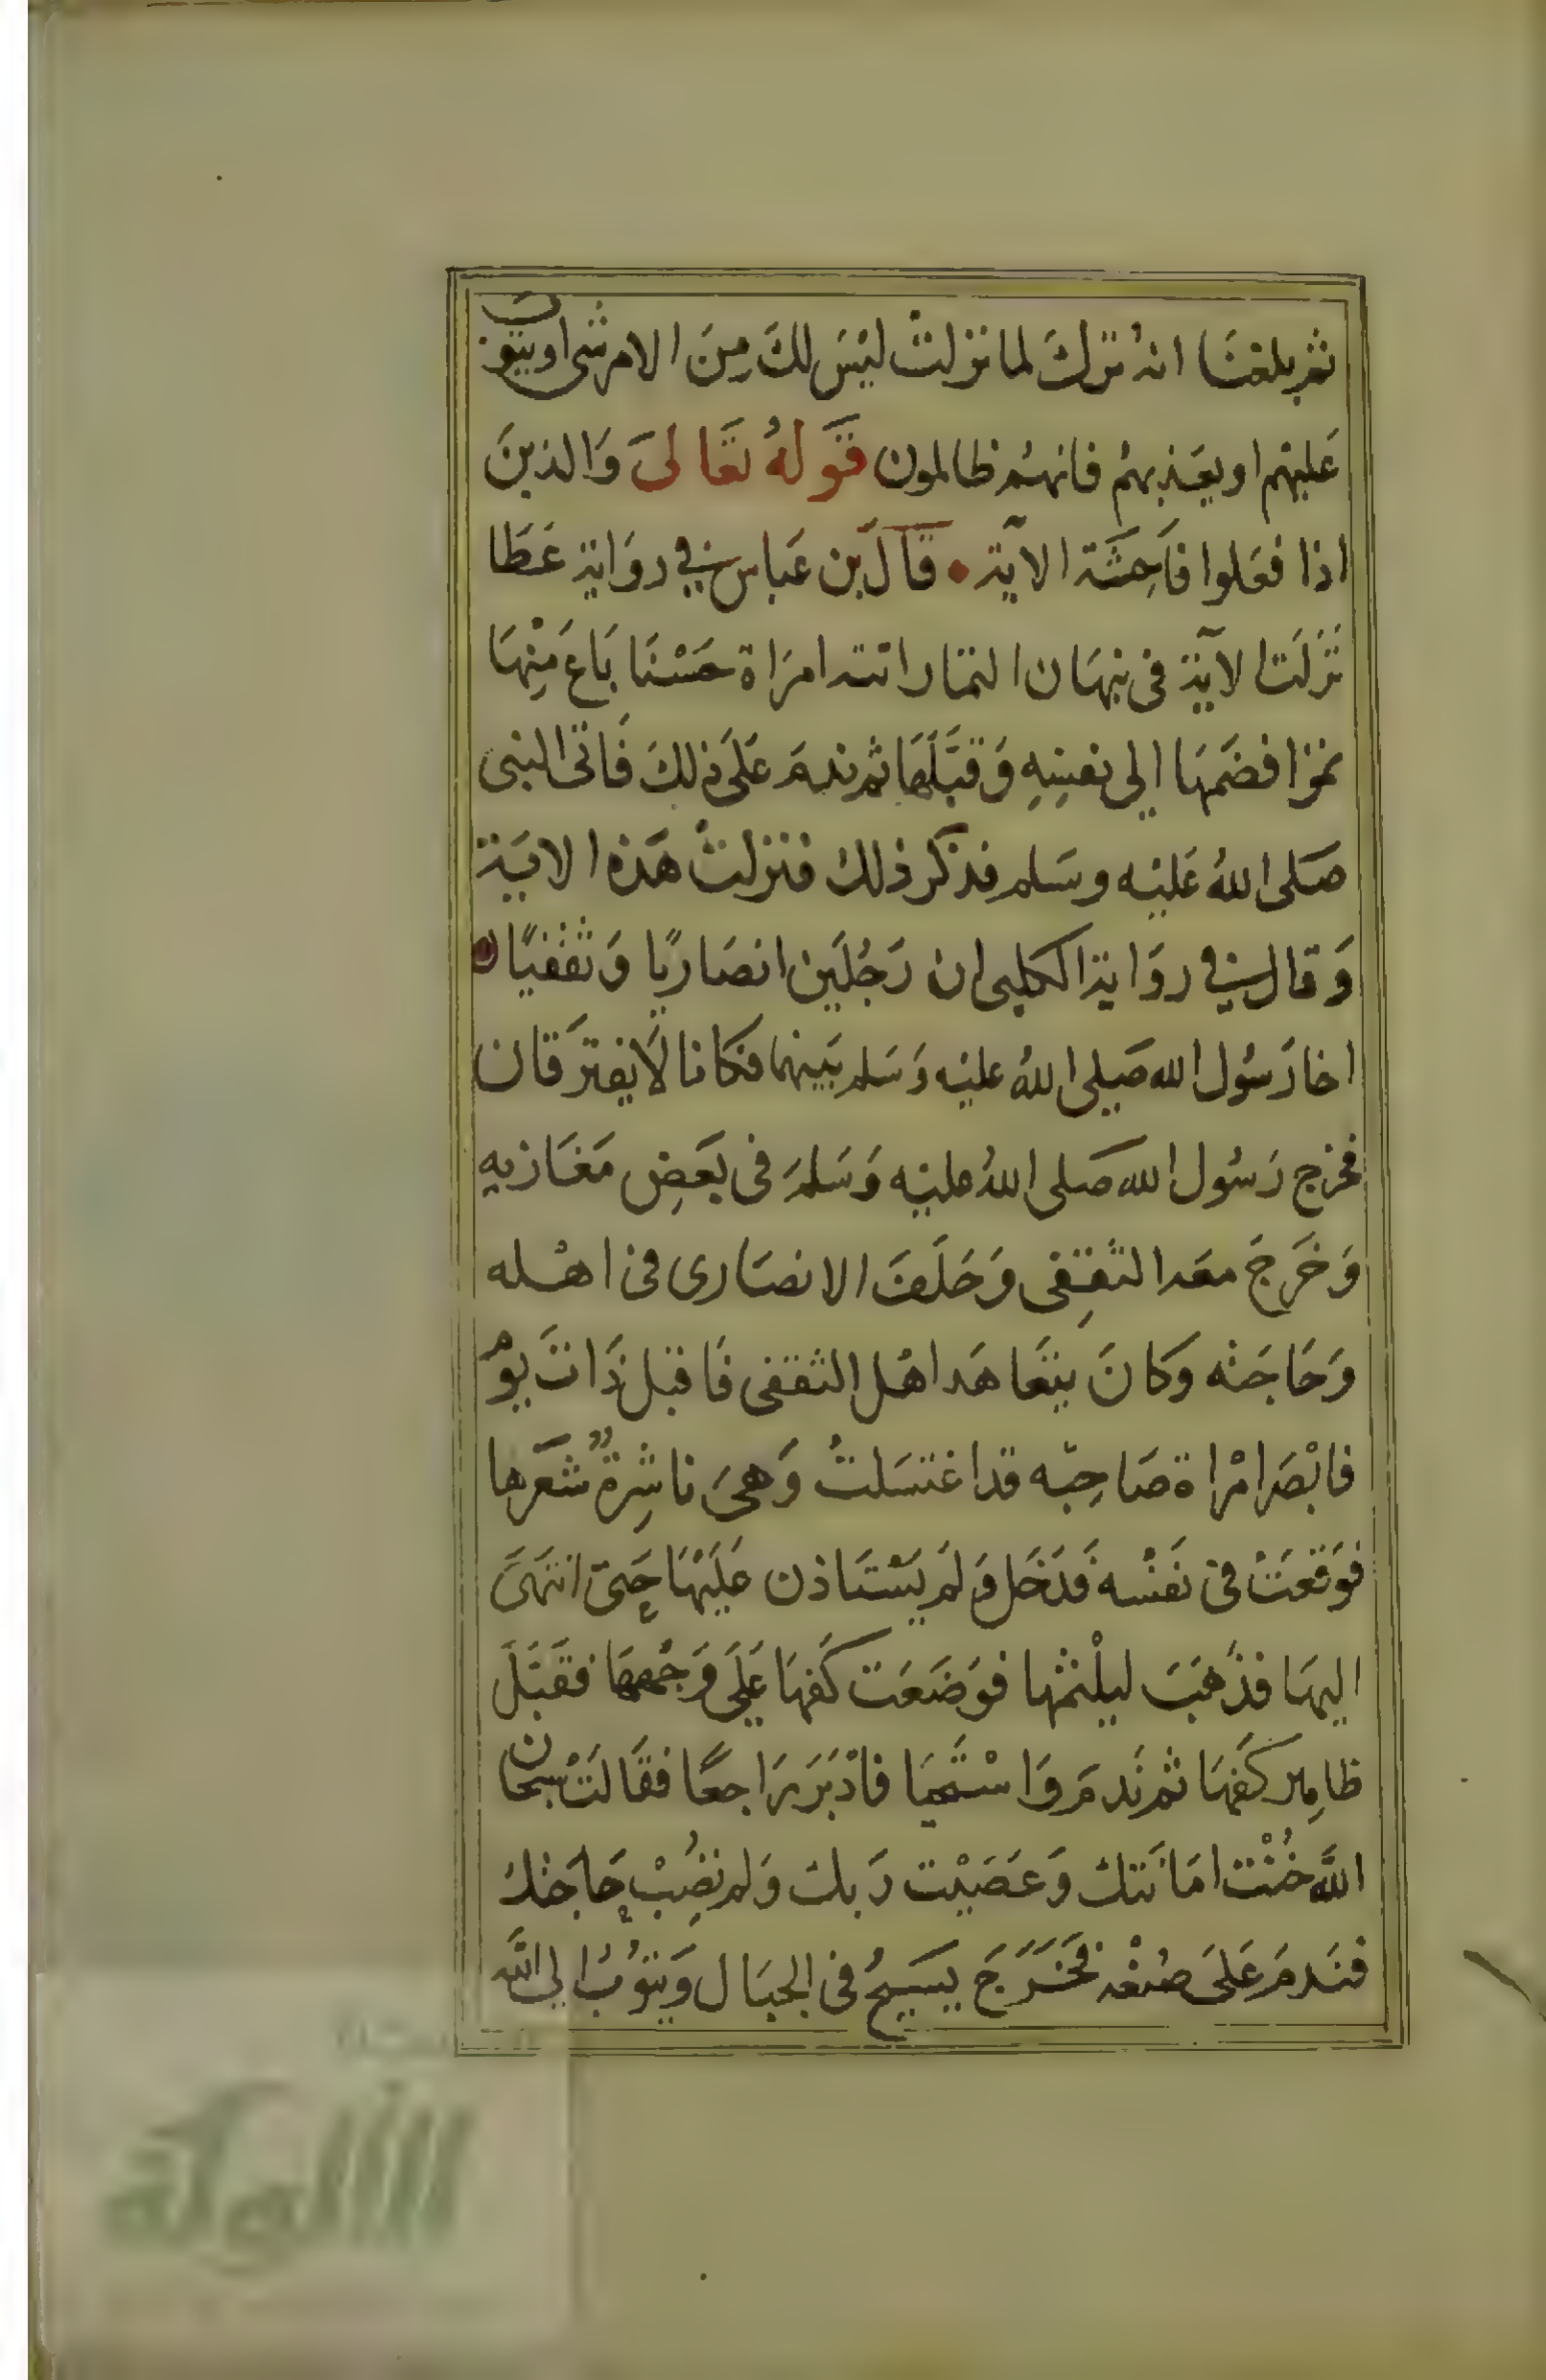 ثم بلغنا انه ترك لما نزلت ليس لك من الامر شى او يتوب
عليهم او يعذبهم فانهم ظالمون قوله تعالى والذين
اذا فعلوا فاحشة الآية • قال بن عباس في رواية عطا
نزلت الآية فى نبهان التمار اتته امراة حسنا باع منها
تمرا فضمها الى نفسه وقبلها ثم ندم على ذلك فاتى النبى
صلى الله عليه وسلم فذكر ذلك فنزلت هذه الاية
وقال في رواية الكلبى ان رجلين انصاريا وثقفيا
اخا رسول الله صلى الله عليه وسلم بينهما فكانا لا يفترقان
فخرج رسول الله صلى الله عليه وسلم فى بعض مغازيه
وخرج معه الثقفى وخلف الانصارى فى اهله
وحاجته وكان يتعاهد اهل الثقفى فاقبل ذات يوم
فابصر امراة صاحبه قد اغتسلت وهى ناشرة شعرها
فوقعت فى نفسه فدخل ولم يستاذن عليها حتى انتهى
اليها فذهب ليلثمها فوضعت كفها على وجهها فقبل
ظاهر كفها ثم ندم واستحيا فادبر راجعا فقالت سبحان
الله خنت امانتك وعصيت ربك ولم تصب حاجتك
فندم على صنعه فخرج يسيح فى الجبال ويتوب الى الله
الألوكة